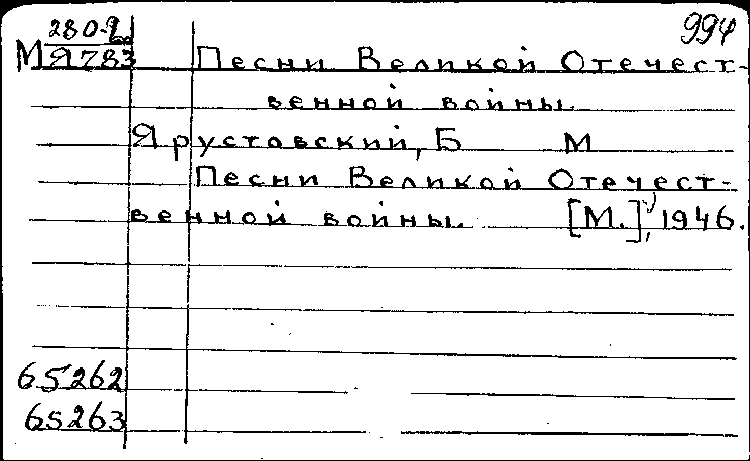 280-2 994
МЯ783 Песни Великой Отечест-
венной войны.
Ярустовский, Б М
Песни Великой Отечест-
венной войны. [М.], 1946.
65262
65263